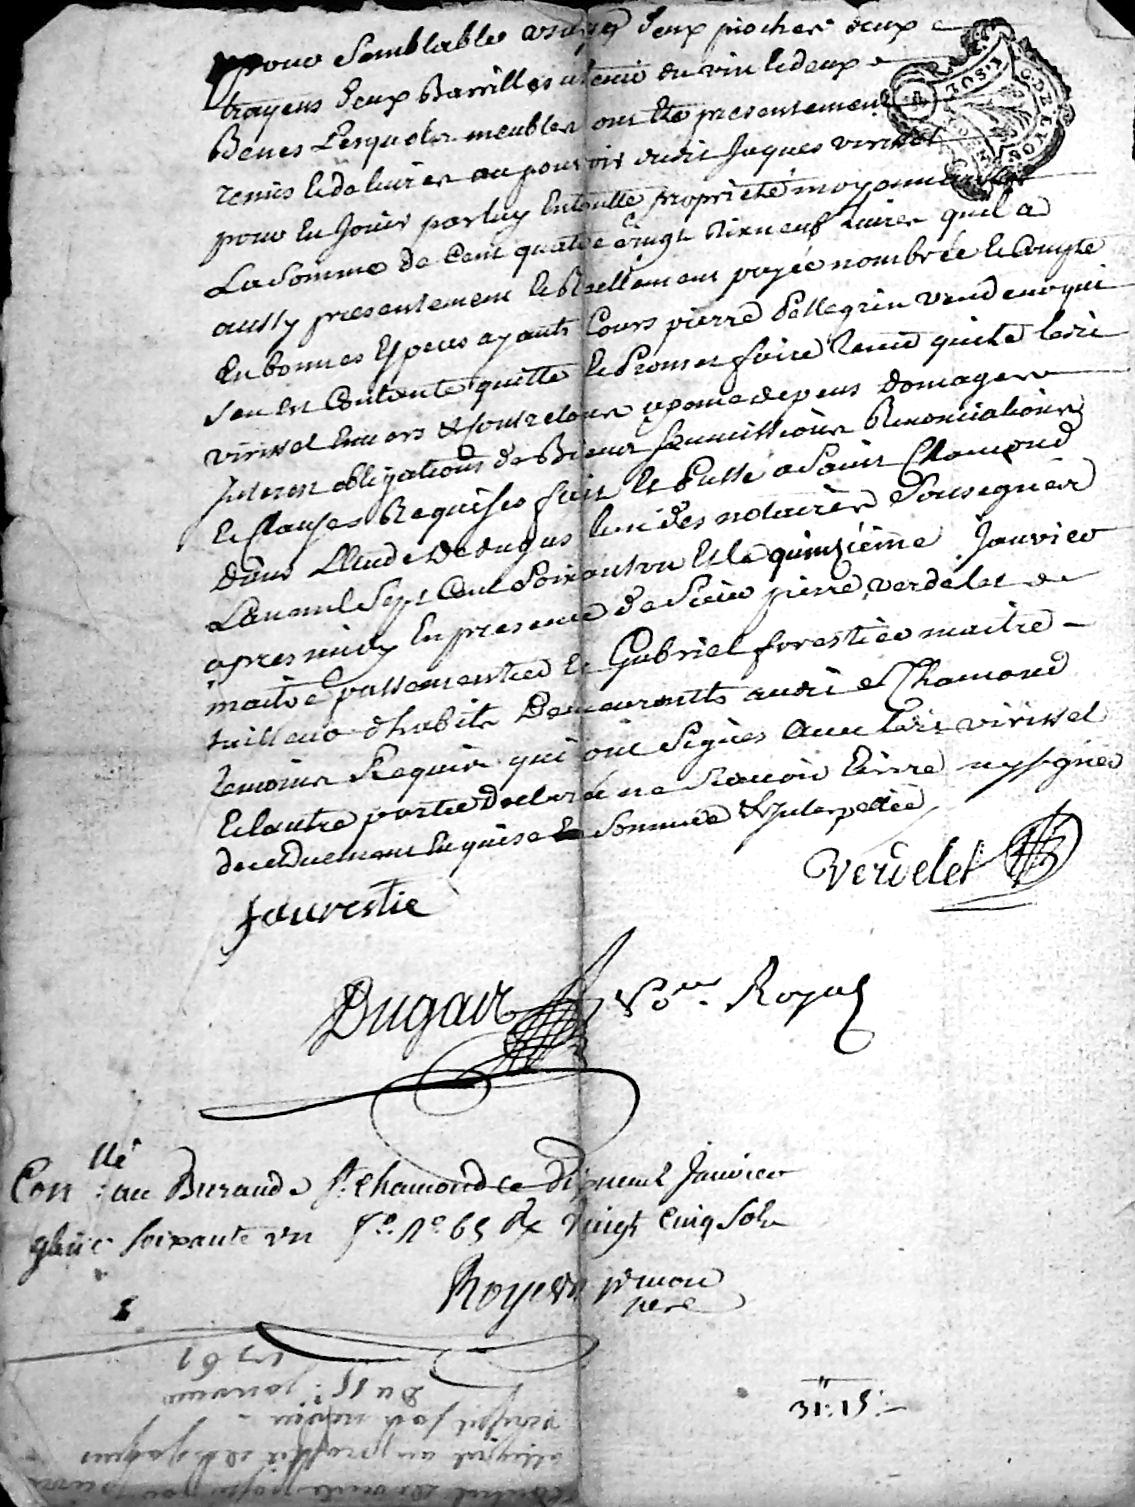 pour semblable usage deux pioches deux
trayens deux Barrilles a tenir du vin et deux
Benes Lesquels meubles ont ete presentement
remis et delivrés au pouvoir dudit Jaques virissel
pour en Jouir par luy En toutte propriete moyennant
La somme de Cent quatre vingt dixneuf Livres quil a
aussy presentement et Reellement payée nombrée et Compté
En bonnes Especes ayants Cours pierre Pellegrin vendeur qui
sen est Contenté quitte et Promet faire tenir quitte ledit
virissel Envers et contre tous a peine de depens domages
Interest obligations de Biens soumissions Renonciations
et Clauses Requises fait et Passé a Saint Chamond
Dans L'Etude de dugas lun des notaires Soussignés
L'an mil Sept Cent Soixante un Et le quinzieme Janvier
apres midy En presence de Sieur pierre verdelet
maitre passementier et Gabriel forestier maitre
tailleur d'habits Demeurants audit St Chamond
temoins Requis qui ont Signés avec ledit virissel
et lautre partie declaré ne Scavoir Ecrire ny signer
de ce duement Enquise Sommée et Interpellée
Verdelet
faurestie
Dugas No.re Royal
Con.llé au Bureau de St. Chamond ce dixneuf Janvier
soixante un f.o 65 Rx vingt Cinq Sols
Royer p.r mon
pere
31: 15:
1761
Du 15: janvier